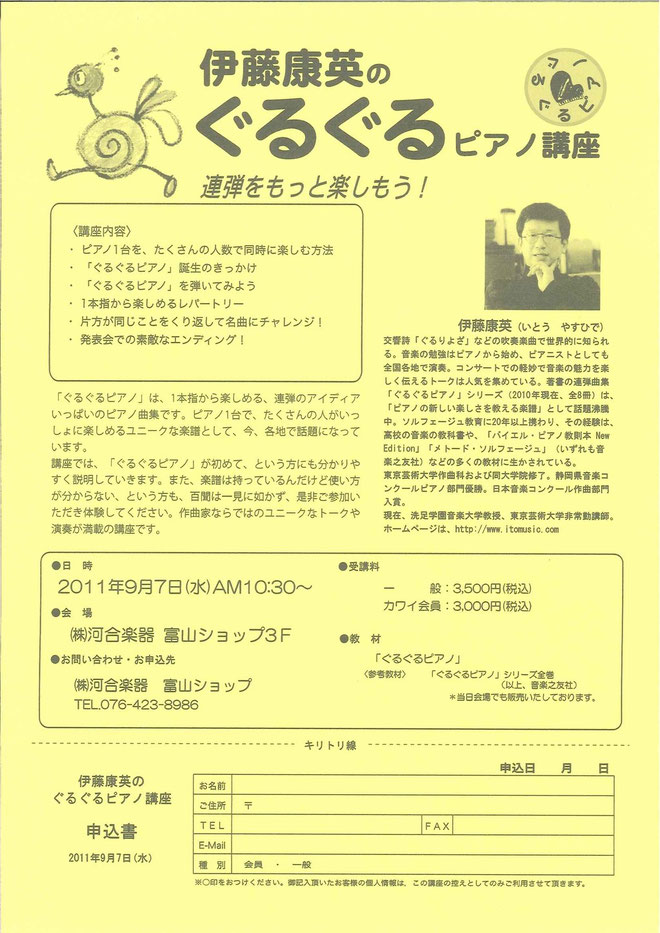 伊藤康英の
ぐるぐるピアノ講座
連弾をもっと楽しもう！
ぐるぐるピアノ
〈講座内容〉
・ ピアノ1台を、たくさんの人数で同時に楽しむ方法
・ 「ぐるぐるピアノ」誕生のきっかけ
・ 「ぐるぐるピアノ」を弾いてみよう
・ 1本指から楽しめるレパートリー
・ 片方が同じことをくり返して名曲にチャレンジ！
・ 発表会での素敵なエンディング！
「ぐるぐるピアノ」は、1本指から楽しめる、連弾のアイディア
いっぱいのピアノ曲集です。ピアノ1台で、たくさんの人がいっ
しょに楽しめるユニークな楽譜として、今、各地で話題になって
います。
講座では、「ぐるぐるピアノ」が初めて、という方にも分かりや
すく説明していきます。また、楽譜は持っているんだけど使い方
が分からない、という方も、百聞は一見に如かず、是非ご参加い
ただき体験してください。作曲家ならではのユニークなトークや
演奏が満載の講座です。
伊藤康英（いとう やすひで）
交響詩「ぐるりよざ」などの吹奏楽曲で世界的に知られ
る。音楽の勉強はピアノから始め、ピアニストとしても
全国各地で演奏。コンサートでの軽妙で音楽の魅力を楽
しく伝えるトークは人気を集めている。著書の連弾曲集
「ぐるぐるピアノ」シリーズ（2010年現在、全8冊）は、
「ピアノの新しい楽しさを教える楽譜」として話題沸騰
中。ソルフェージュ教育に20年以上携わり、その経験は、
高校の音楽の教科書や、「バイエル・ピアノ教則本 New
Edition」「メトード・ソルフェージュ」（いずれも音
楽之友社）などの多くの教材に生かされている。
東京芸術大学作曲科および同大学院修了。静岡県音楽コ
ンクールピアノ部門優勝。日本音楽コンクール作曲部門
入賞。
現在、洗足学園音楽大学教授、東京芸術大学非常勤講師。
ホームページは、http://www.itomusic.com
●日 時
2011年9月7日(水)AM10:30～
●会 場
㈱河合楽器 富山ショップ3F
●お問い合わせ・お申込先
㈱河合楽器 富山ショップ
TEL.076-423-8986
●受講料
一 般：3,500円(税込)
カワイ会員：3,000円(税込)
●教 材
「ぐるぐるピアノ」
〈参考教材〉 「ぐるぐるピアノ」シリーズ全巻
（以上、音楽之友社）
＊当日会場でも販売いたしております。
キリトリ線
伊藤康英の
ぐるぐるピアノ講座
申込書
2011年9月7日(水)
申込日 月 日
お名前
ご住所 〒
TEL FAX
E-Mail
種 別 会員 ・ 一般
※○印をおつけください。御記入頂いたお客様の個人情報は、この講座の控えとしてのみご利用させて頂きます。